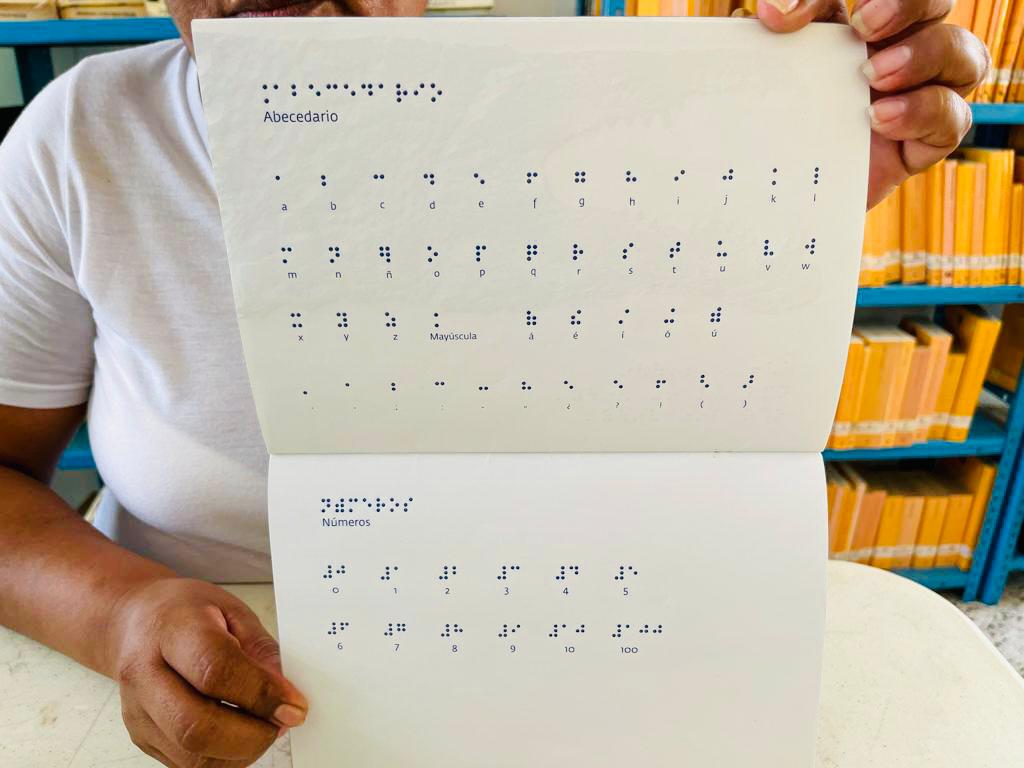 Abecedario
a b c d e f g h i j k l
m n ñ o p q r s t u v w
x y z Mayúscula á é í ó ú
. , ; : - " ¿ ? ! ( )
Números
0 1 2 3 4 5
6 7 8 9 10 100